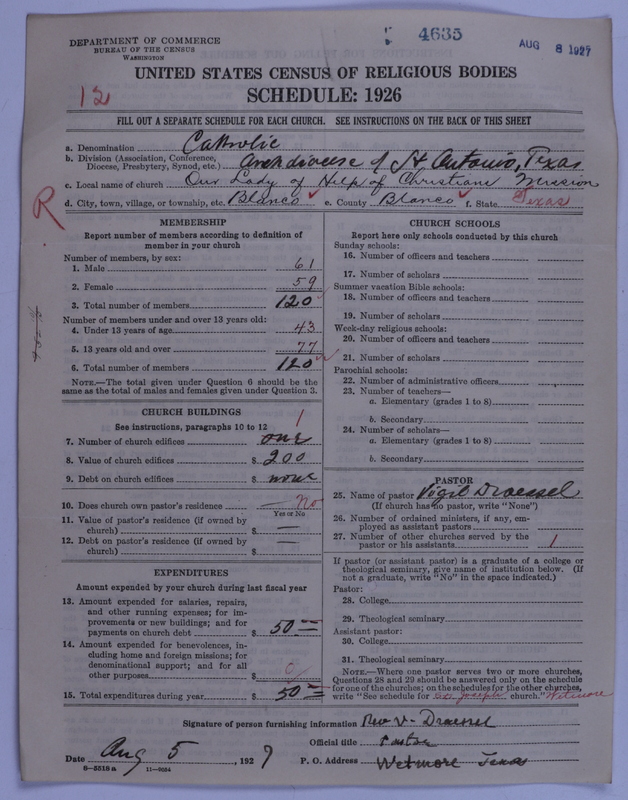 4635
AUG 8 1927
DEPARTMENT OF COMMERCE
BUREAU OF THE CENSUS
WASHINGTON
UNITED STATES CENSUS OF RELIGIOUS BODIES
SCHEDULE: 1926
12
FILL OUT A SEPARATE SCHEDULE FOR EACH CHURCH. SEE INSTRUCTIONS ON THE BACK OF THIS SHEET
a. Denomination Catholic
b. Division (Association, Conference, Diocese, Presbytery, Synod, etc.) Archdiocese of St Antonio, Texas
c. Local name of church Our Lady of Help of Christians Mission
d. City, town, village, or township, etc. Blanco e. County Blanco f. State Texas
R
MEMBERSHIP
Report number of members according to definition of
member in your church
Number of members, by sex:
1. Male 61
2. Female 59
3. Total number of members 120
Number of members under and over 13 years old:
4. Under 13 years of age 43
5. 13 years old and over 77
6. Total number of members 120
NOTE.—The total given under Question 6 should be
same as the total of males and females given under Question 3.
CHURCH BUILDINGS
See instructions, paragraphs 10 to 12
1
7. Number of church edifices one
8. Value of church edifices $ 200
9. Debt on church edifices $ none
10. Does church own pastor's residence No
Yes or No
11. Value of pastor's residence (if owned by
church) $ —
12. Debt on pastor's residence (if owned by
church) $ —
EXPENDITURES
Amount expended by your church during last fiscal year
13. Amount expended for salaries, repairs,
and other running expenses; for im-
provements or new buildings; and for
payments on church debt $ 50
14. Amount expended for benevolences, in-
cluding home and foreign missions; for
denominational support; and for all
other purposes $ 0
15. Total expenditures during year $ 50
CHURCH SCHOOLS
Report here only schools conducted by this church
Sunday schools:
16. Number of officers and teachers
17. Number of scholars
Summer vacation Bible schools:
18. Number of officers and teachers
19. Number of scholars
Week-day religious schools:
20. Number of officers and teachers
21. Number of scholars
Parochial schools:
22. Number of administrative officers
23. Number of teachers—
a. Elementary (grades 1 to 8)
b. Secondary
24. Number of scholars—
a. Elementary (grades 1 to 8)
b. Secondary
PASTOR
25. Name of pastor Virgil Draessel
(If church has no pastor, write "None")
26. Number of ordained ministers, if any, em-
ployed as assistant pastors
27. Number of other churches served by the
pastor or his assistants 1
If pastor (or assistant pastor) is a graduate of a college or
theological seminary, give name of institution below. (If
not a graduate, write "No" in the space indicated.)
Pastor:
28. College
29. Theological seminary
Assistant pastor:
30. College
31. Theological seminary
NOTE.—Where one pastor serves two or more churches,
Questions 28 and 29 should be answered only on the schedule
for one of the churches; on the schedules for the other churches,
write "See schedule for St. Joseph church." Wetmore
Signature of person furnishing information Rev V. Draessel
Official title Pastor
Date Aug 5, 1927 P. O. Address Wetmore Texas
6—5518 a 11—9064